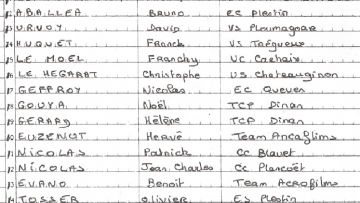 A.B.A.L.L.E.A Bruno EC Plestin
U.R.V.O.Y David VS Ploumagoar
H.U.Q.U.E.T Franck VS Trégueux
L.E. M.O.E.L Franchy UC Carhaix
L.E. H.E.G.A.R.A.T Christophe U.S. Chateaugiron
G.E.F.F.R.O.Y Nicolas EC Queven
G.O.U.Y.A. Noël TCP Dinan
G.E.R.A.R.D Hélène TCP Dinan
E.U.Z.E.N.O.T Hervé Team
N.I.C.O.L.A.S Patrick CC Blavet
N.I.C.O.L.A.S Jean.Charles Cc Plancoët
E.V.A.N.O. Benoit Team Acrofilms
T.O.S.S.E.R olivier ES Plestin